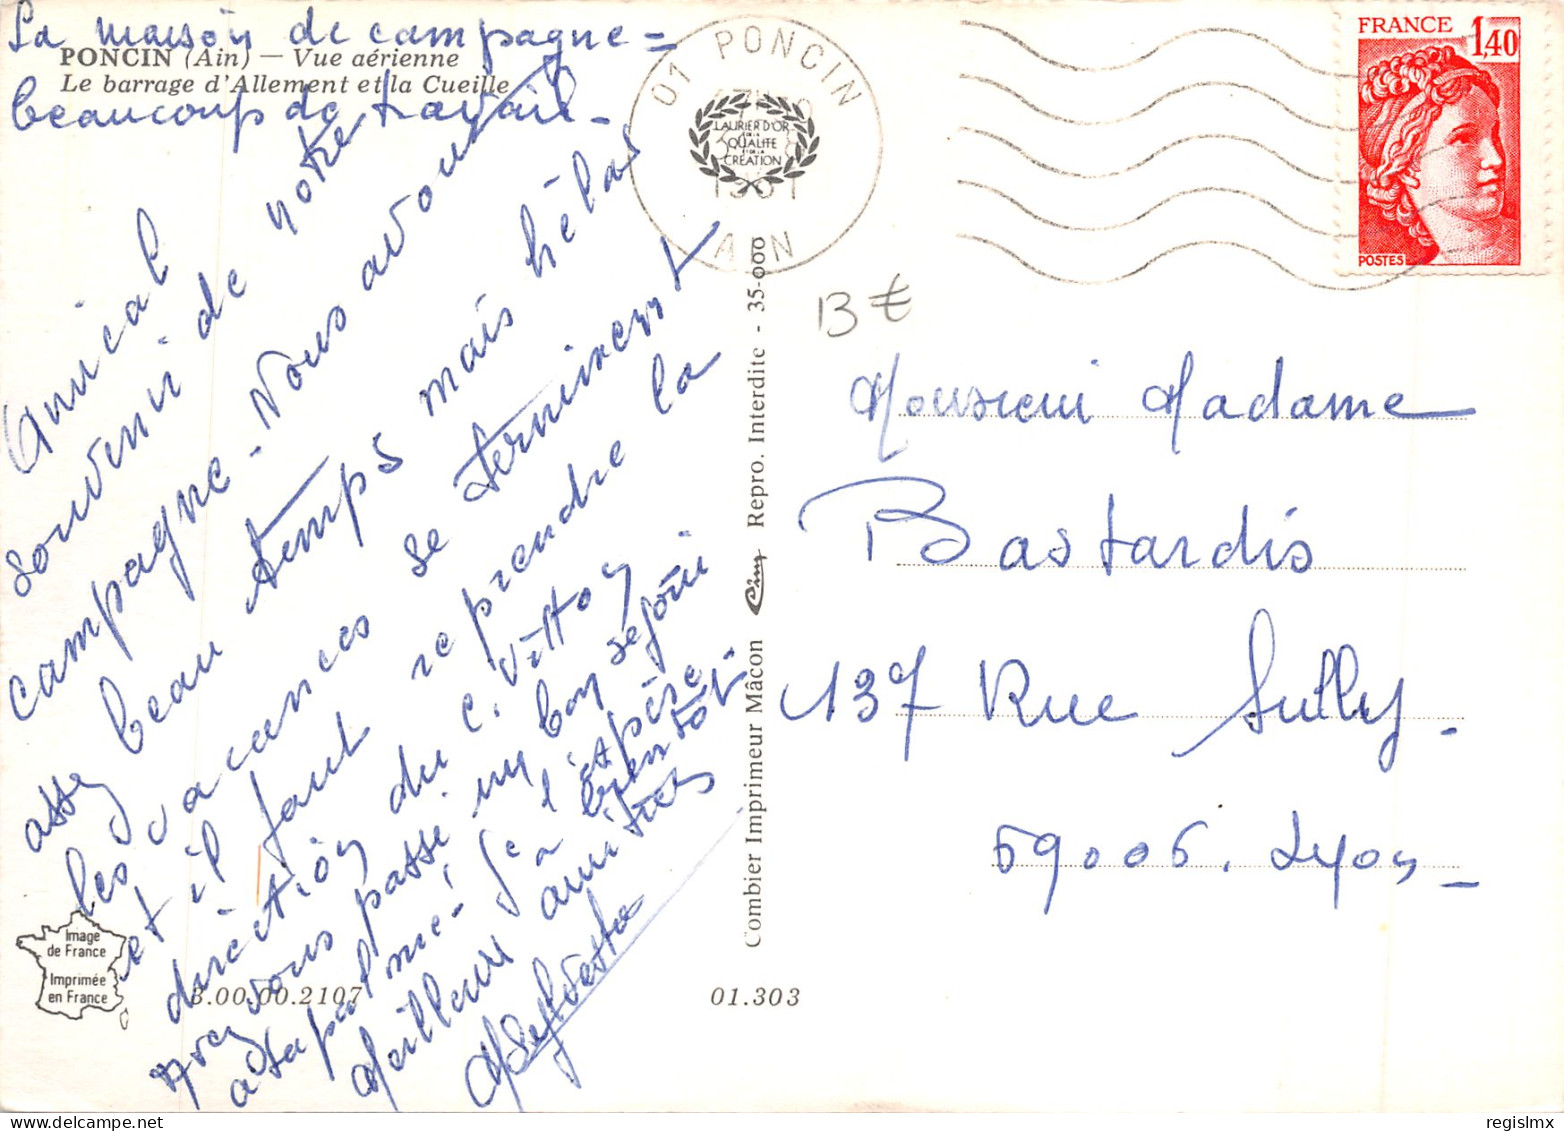 La maison de campagne =
beaucoup de travail -
PONCIN (Ain) — Vue aérienne
Le barrage d'Allement et la Cueille
Amical
souvenir de notre
campagne - Nous avons
assez beau temps mais hélas
les vacances se terminent
et il faut reprendre la
direction du C. Vitton
Avez vous passé un bon séjour
à la
l'espère
à bientôt -
Meilleures amitiés
01 PONCIN
AIN
LAURIER D'OR
DE LA
QUALITE
ET DE LA
CREATION
FRANCE
1,40
POSTES
13 €
Monsieur Madame
Bastardis
137 Rue Sully -
69006. Lyon -
Combier Imprimeur Mâcon Cim Repro. Interdite - 35-000
Image
de France
Imprimée
en France
3.00.00.2107
01.303
regislmx